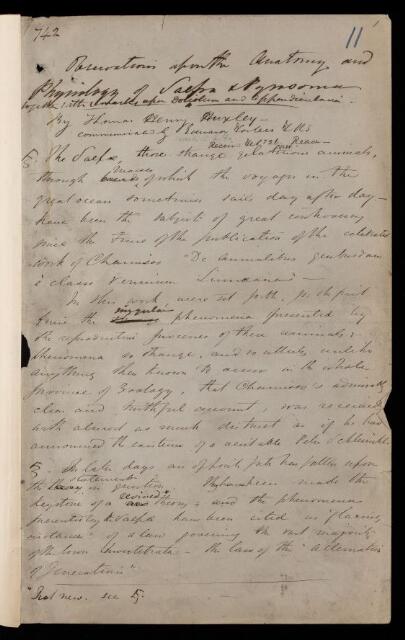 742
11
Observations upon the Anatomy and
Physiology of Salpa & Pyrosoma
together with remarks upon Doliolum and Appendicularia.
By Thomas Henry Huxley
communicated by Edward Forbes F.R.S
The Salpæ, those strange gelatinous animals,
through masses of which the voyager in the
great ocean sometimes sails day after day
have been the subject of great controversy
since the time of the publication of the celebrated
work of Chamisso "De animalibus quibusdam
e classe Vermium Linnaeana"
In this work, were set forth, for the first
time the singular phenomena presented by
the reproductive processes of these animals;
phenomena so strange, and so utterly unlike
anything then known to occur in the whole
province of Zoology, that Chamisso's admirably
clear and truthful account, was received
with almost as much distrust as if he had
announced the existence of a veritable Peter Schlemihl
In later days an opposite fate has fallen upon
the statements in question. have been made the
keystone of a revived* theory, and the phenomena
presented by the Salpæ have been cited as "glaring
instances" of a law governing the vast majority
of the lower Invertebrata – the law of the "Alternation
of Generations"
* not new. see